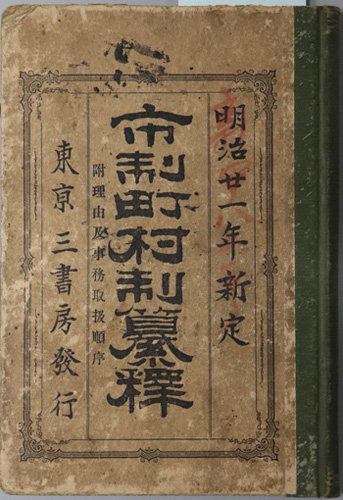 明治廿一年新定
市制町村制纂釋
附理由及事務取扱順序
東京三書房發行